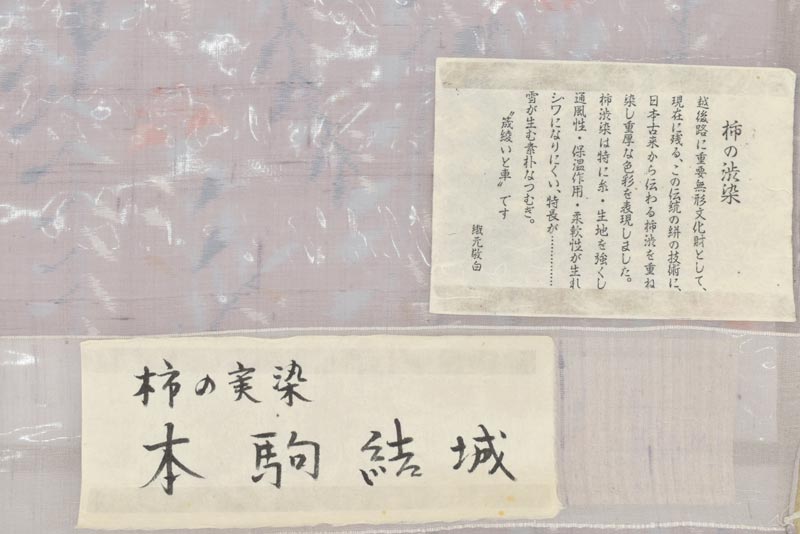 柿の渋染
越後路に重要無形文化財として、
現在に残る、この伝統の絣の技術に、
日本古来から伝わる柿渋を重ね
染し重厚な色彩を表現しました。
柿渋染は特に糸・生地を強くし
通風性・保温作用・柔軟性が生れ
シワになりにくい、特長が…………
雪が生む素朴なつむぎ。
〝茂綾いと車〟です
織元敬白
柿の実染
本駒結城